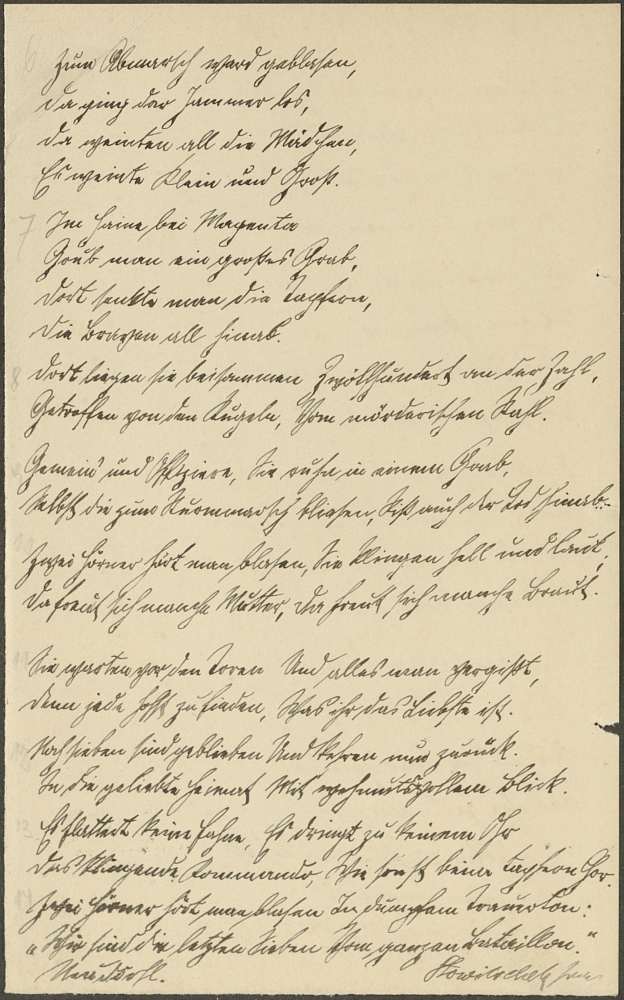 6 Zum Abmarsch ward geblasen,
Da ging der Jammer los,
Da weinten all die Mädchen,
Es weinte Klein und Groß.
7 Im Haine bei Magenta
Grub man ein großes Grab,
Dort senkte man die Tapfern,
Die Braven all hinab.
8 Dort liegen sie beisammen Zwölfhundert an der Zahl,
Getroffen von den Kugeln, Vom mörderischen Stahl.
Gemein' und Offiziere, Sie ruhn in einem Grab,
Selbst die zum Sturmmarsch bliesen, Riß auch der Tod hinab.-
Zwei Hörner hört man blasen, Sie klingen hell und laut,
Da freut sich manche Mutter, Da freut sich manche Braut.
Sie warten vor den Toren Und alles man vergißt,
Denn jede hofft zu finden, Was ihr das Liebste ist.
Nach sieben sind geblieben Und kehren nun zurück.
In die geliebte Heimat Mit wehmutsvollem Blick.
Es flattert keine Fahne, Es dringt zu keinem Ohr
Das klingende Kommando, Wie sonst beim tapfern Chor.
Zwei Hörner hört man blasen In dumpfem Trauerton:
"Wir sind die letzten Sieben Vom ganzen Bataillon."